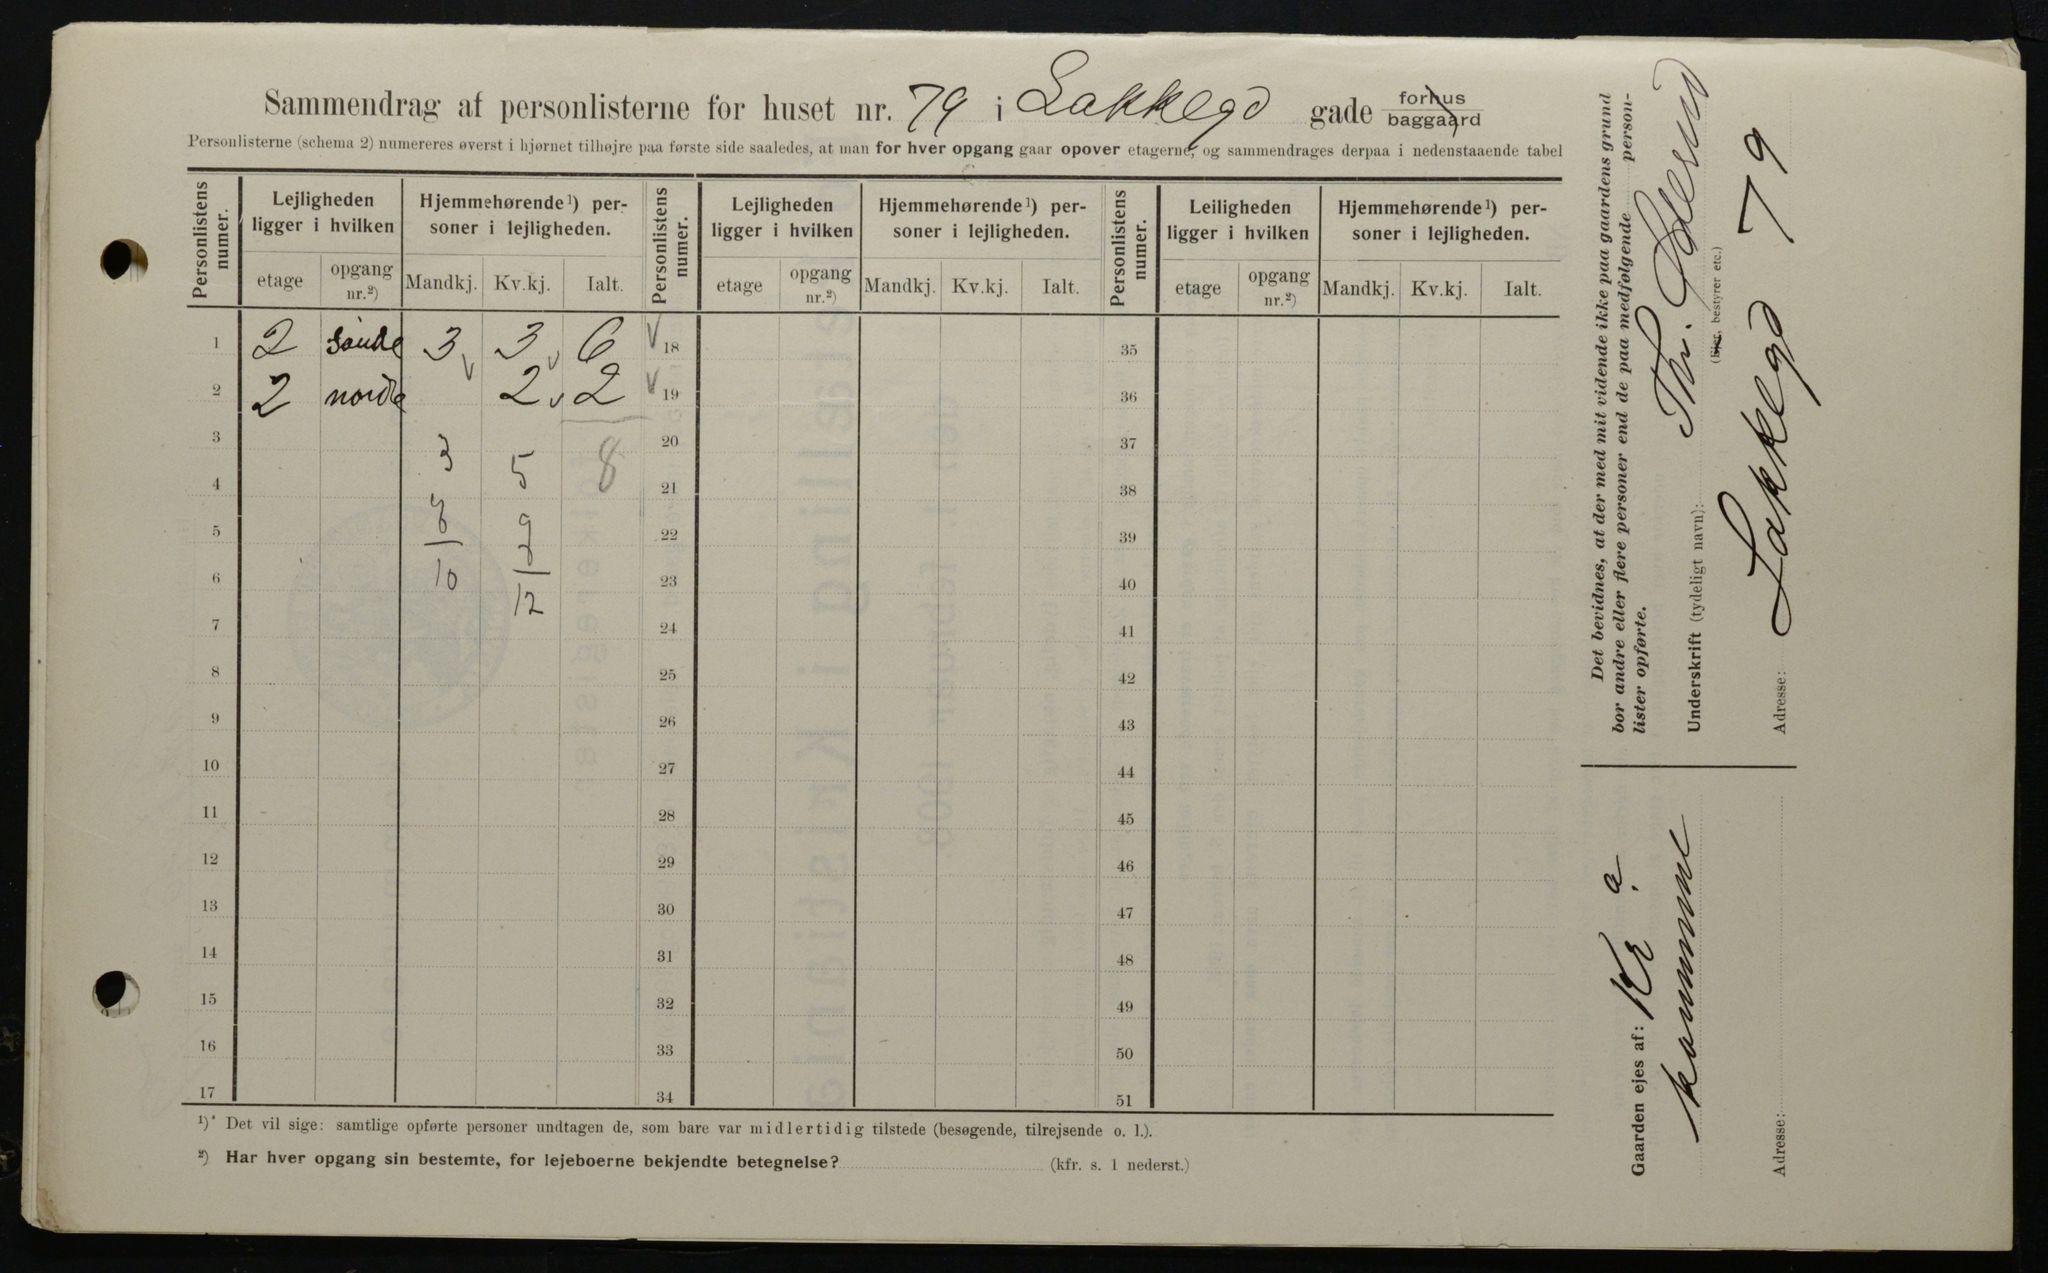 Sammendrag af personlisterne for huset nr. 79 i Lakkegd gade forhus baggaard
Personlisterne (schema 2) numereres øverst i hjørnet tilhøjre paa første side saaledes, at man for hver opgang gaar opover etagerne, og sammendrages derpaa i nedenstaaende tabel
Personlistens numer. Lejligheden ligger i hvilken Hjemmehørende¹) personer i lejligheden. Personlistens numer. Lejligheden ligger i hvilken Hjemmehørende¹) personer i lejligheden. Personlistens numer. Leiligheden ligger i hvilken Hjemmehørende¹) personer i lejligheden.
etage opgang nr.²) Mandkj. Kv.kj. Ialt. etage opgang nr.²) Mandkj. Kv.kj. Ialt. etage opgang nr.²) Mandkj. Kv.kj. Ialt.
1 2 søndre 3 3 6 18 35
2 2 nordre 2 2 19 36
3 3 5 8 20 37
4 21 38
5 9 22 39
6 10 12 23 40
7 24 41
8 25 42
9 26 43
10 27 44
11 28 45
12 29 46
13 30 47
14 31 48
15 32 49
16 33 50
17 34 51
¹) Det vil sige: samtlige opførte personer undtagen de, som bare var midlertidig tilstede (besøgende, tilrejsende o. l.).
²) Har hver opgang sin bestemte, for lejeboerne bekjendte betegnelse? (kfr. s. 1 nederst.)
Det bevidnes, at der med mit vidende ikke paa gaardens grund
bor andre eller flere personer end de paa medfølgende personlister opførte.
Underskrift (tydeligt navn): Th.
(Ejer, bestyrer etc.)
Adresse: Lakkegd 79
Gaarden ejes af: Kr a
kommune
Adresse: